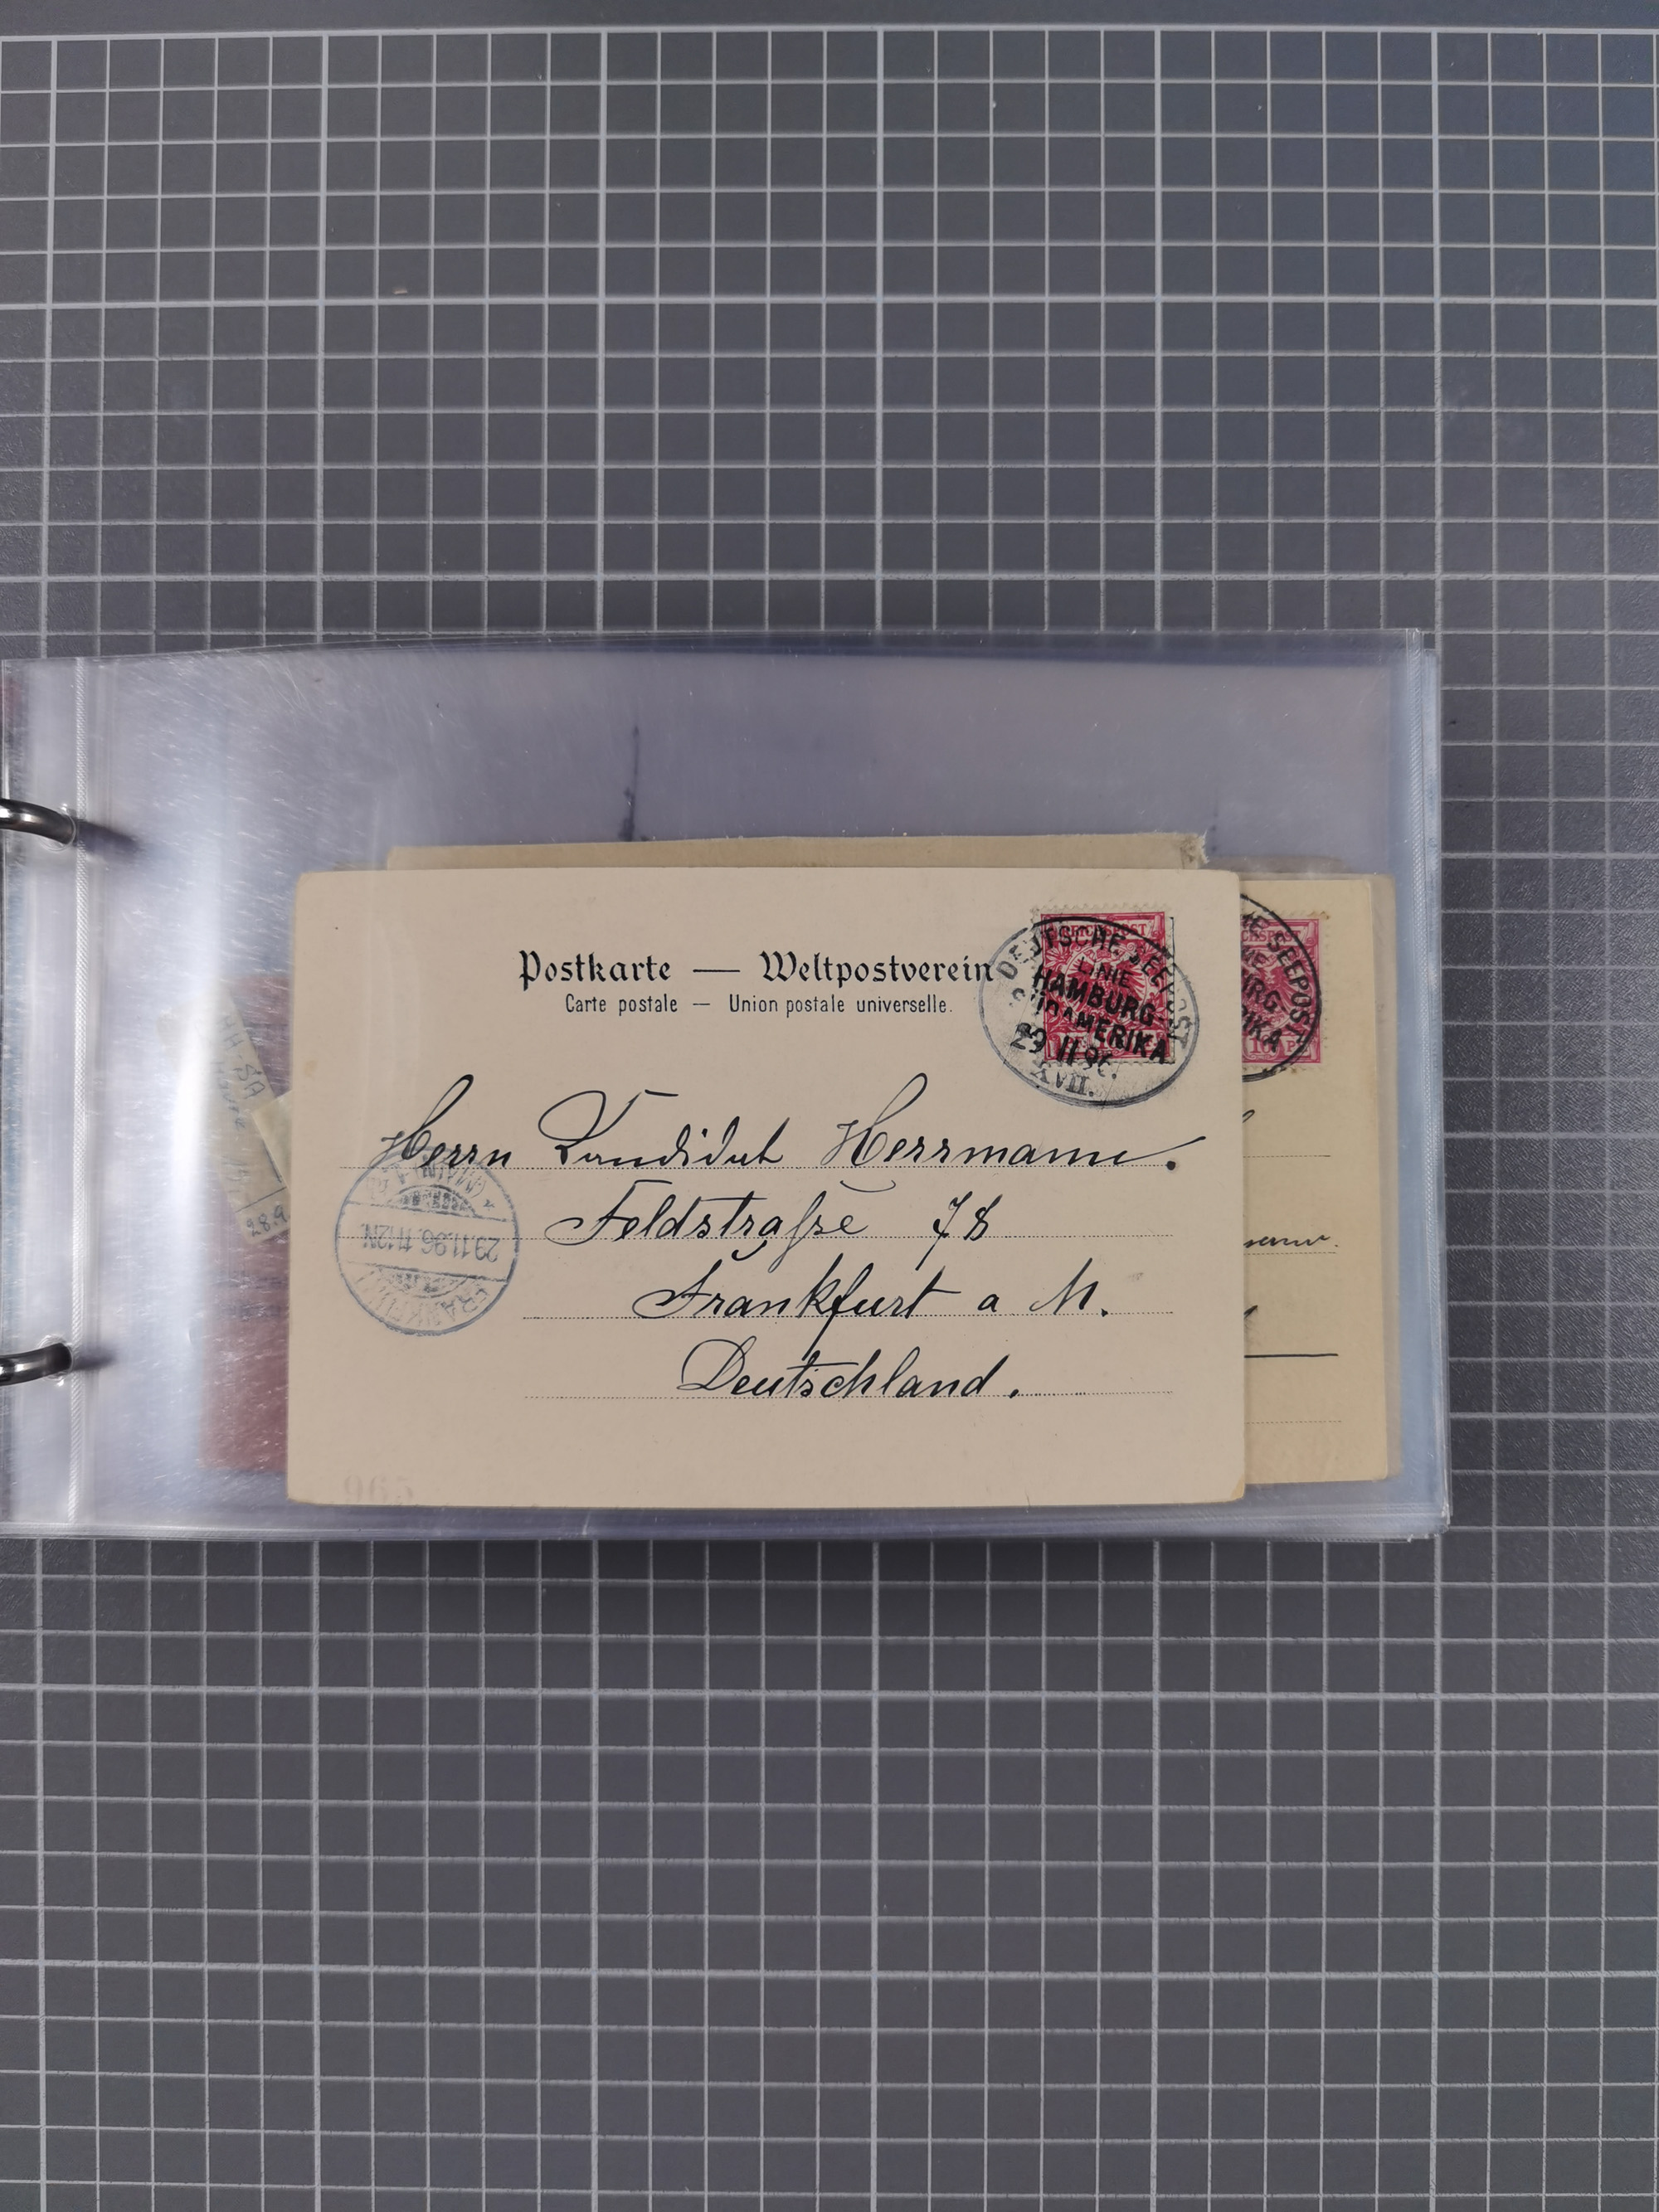 Postkarte — Weltpostverein
Carte postale — Union postale universelle.
REICHSPOST
DEUTSCHE SEEPOST
LINIE
HAMBURG-
SÜDAMERIKA
29 11 96.
XVII.
Herrn Kandidat Herrmann.
Feldstraße 78
Frankfurt a M.
Deutschland.
FRANKFURT
29.11.96. 11-12N.
(MAIN)
SEEPOST
28.9